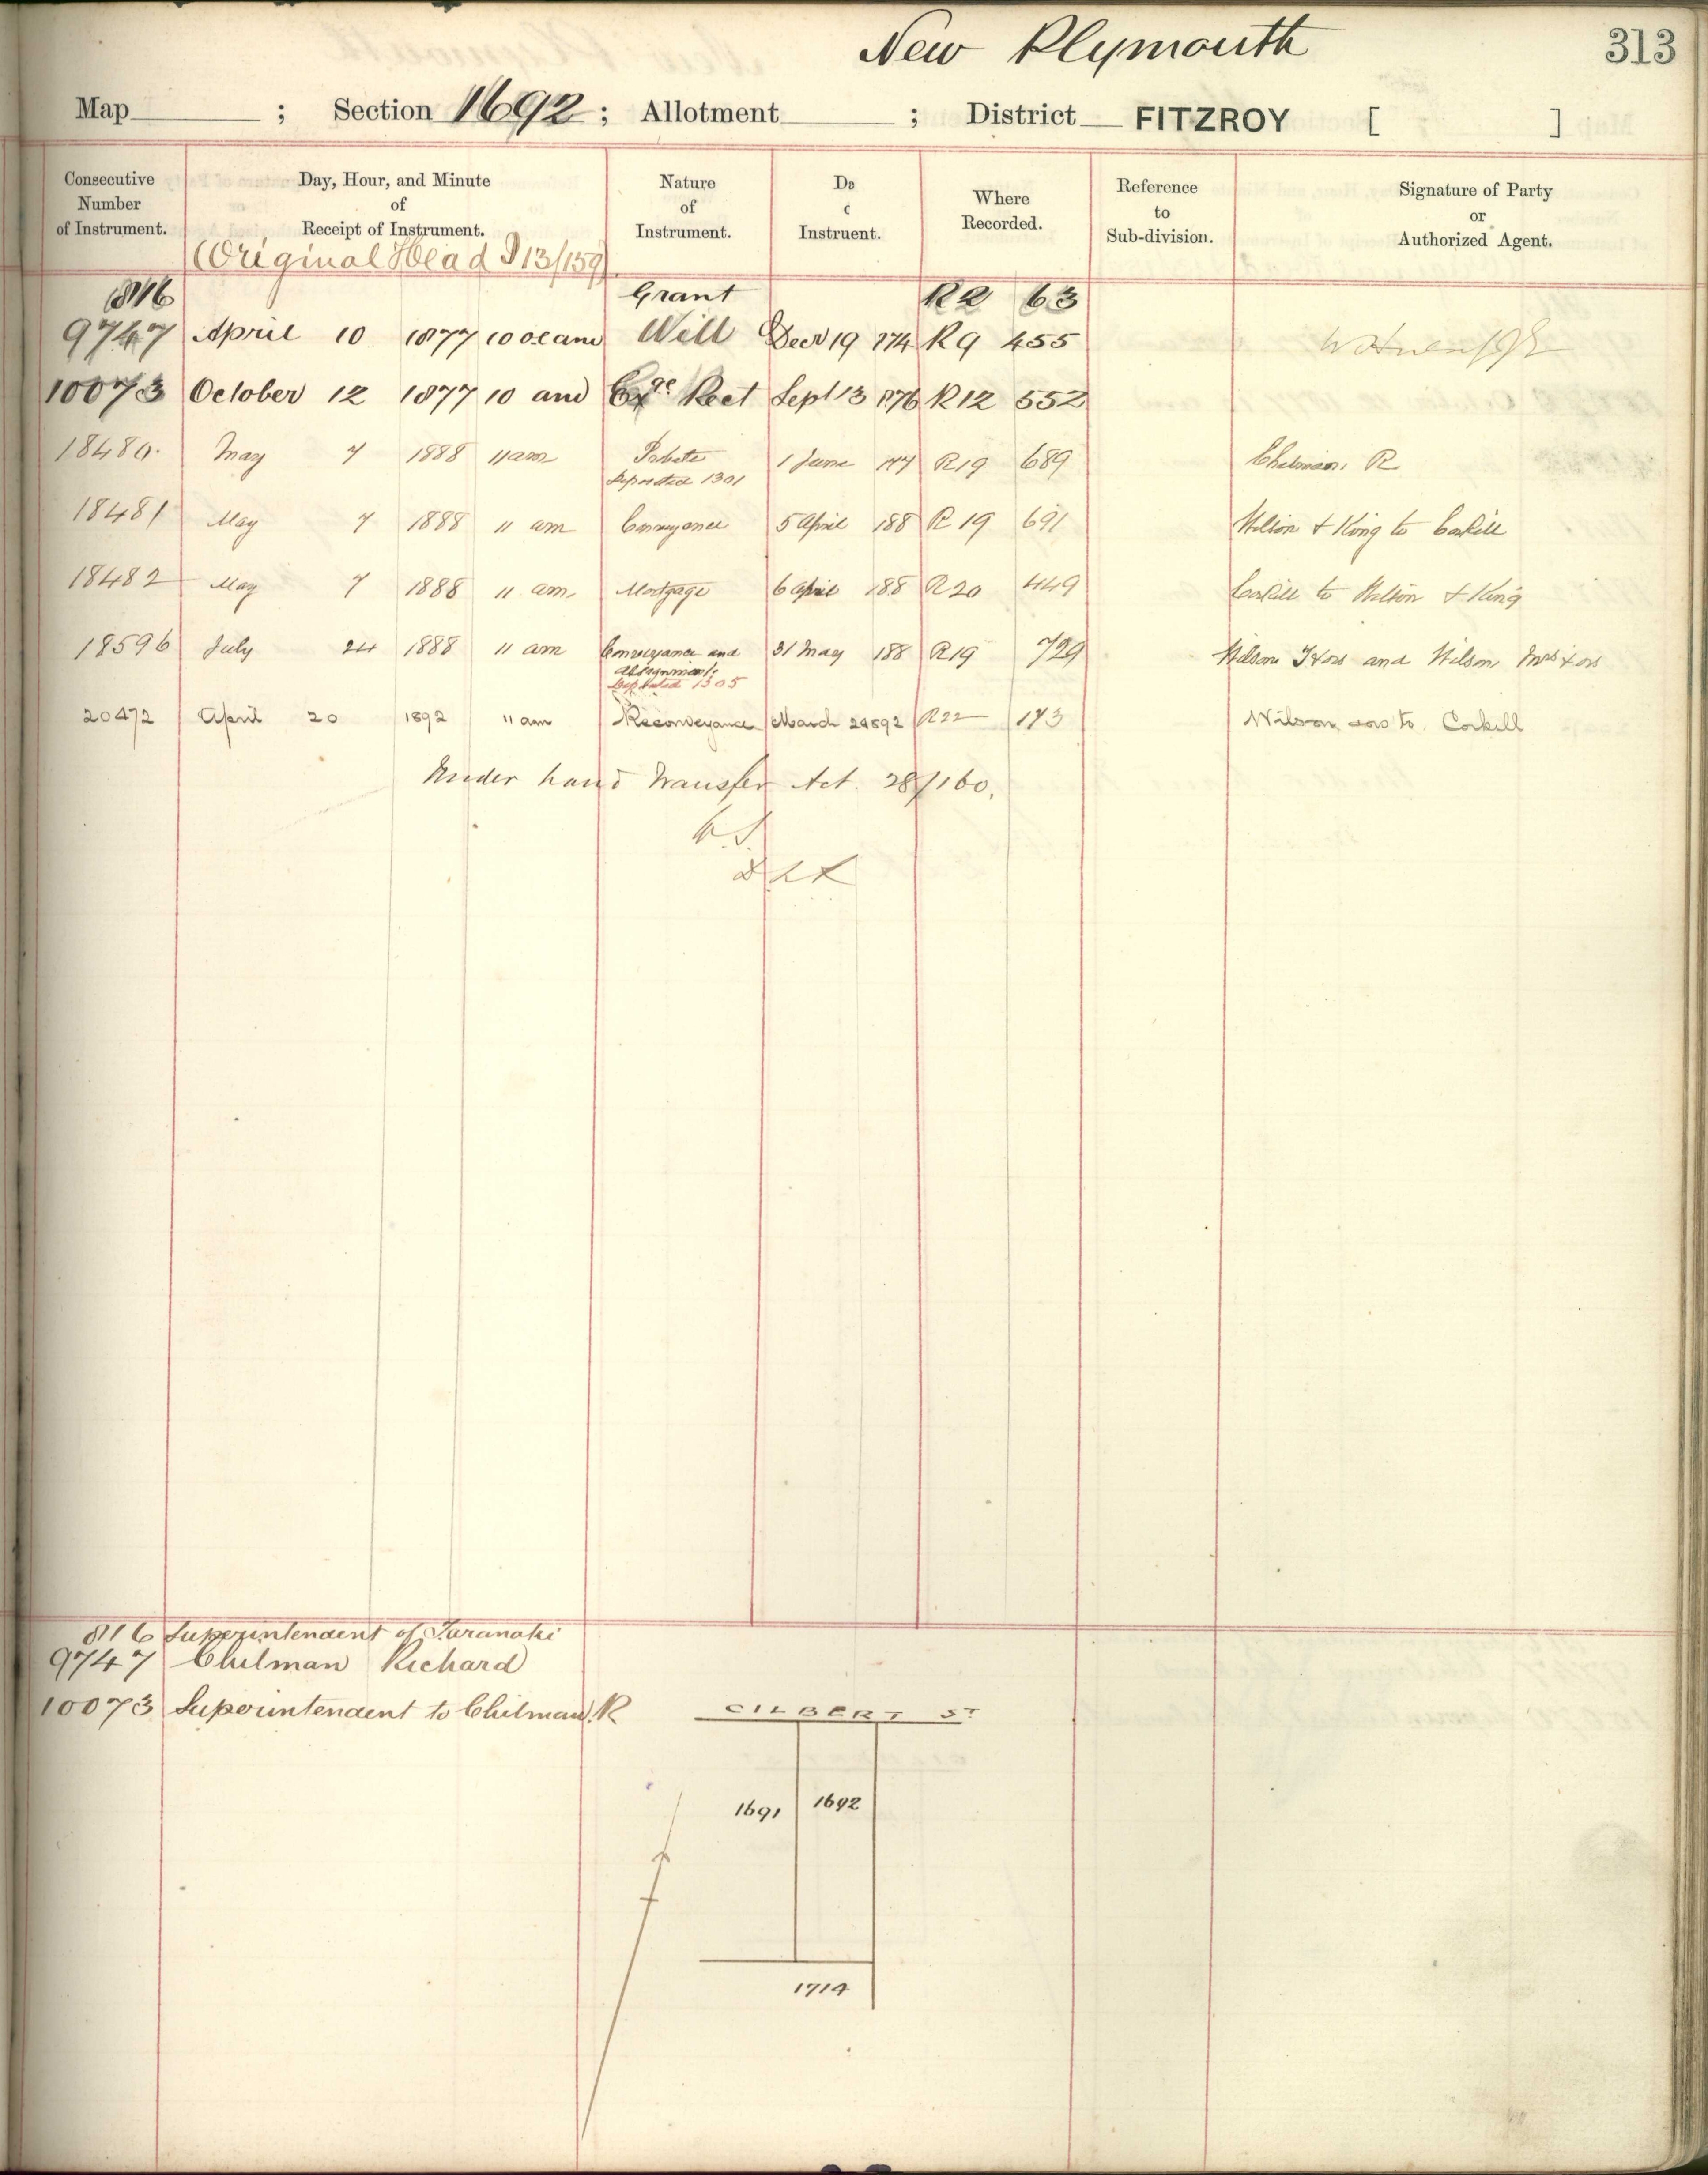 New Plymouth
313
Map ; Section 1692 ; Allotment ; District FITZROY [ ]
Consecutive Number of Instrument.
Day, Hour, and Minute of Receipt of Instrument.
Nature of Instrument.
Da c Instruent.
Where Recorded.
Reference to Sub-division.
Signature of Party or Authorized Agent.
(Original Head I 13/159)
8116 Grant R2 63
9747 April 10 1877 10 am Will Decr 19 874 R9 455
10073 October 12 1877 10 am Exge Rect Sept 13 876 R12 552
18480. May 7 1888 11 am Probate 1 June 77 R19 689 Chilman, R
Deposited 1301
18481 May 7 1888 11 am Conveyance 5 April 188 R19 691 Wilson & King to Corkill
18482 May 7 1888 11 am. Mortgage 6 April 188 R20 449 Corkill to Wilson & King
18596 July 24 1888 11 am Conveyance and 31 May 188 R19 729 Wilson & ors and Wilson Mrs & ors
Assignment.
Deposited 1305
20472 April 20 1892 11 am Reconveyance March 24 892 R22 173 Wilson & ors to Corkill
Under Land Transfer Act. 28/160.
8116 Superintendent of Taranaki
9747 Chilman Richard
10073 Superintendent to Chilman R
GILBERT ST
1691 1692
1714